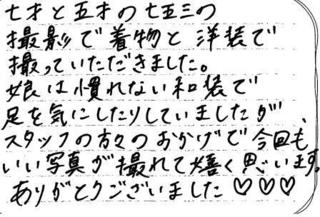 七才と五才の七五三の
撮影で着物と洋装で
撮っていただきました。
娘は慣れない和装で
足を気にしたりしていましたが、
スタッフの方々のおかげで今回も
いい写真が撮れて嬉く思います。
ありがとうございました♡♡♡